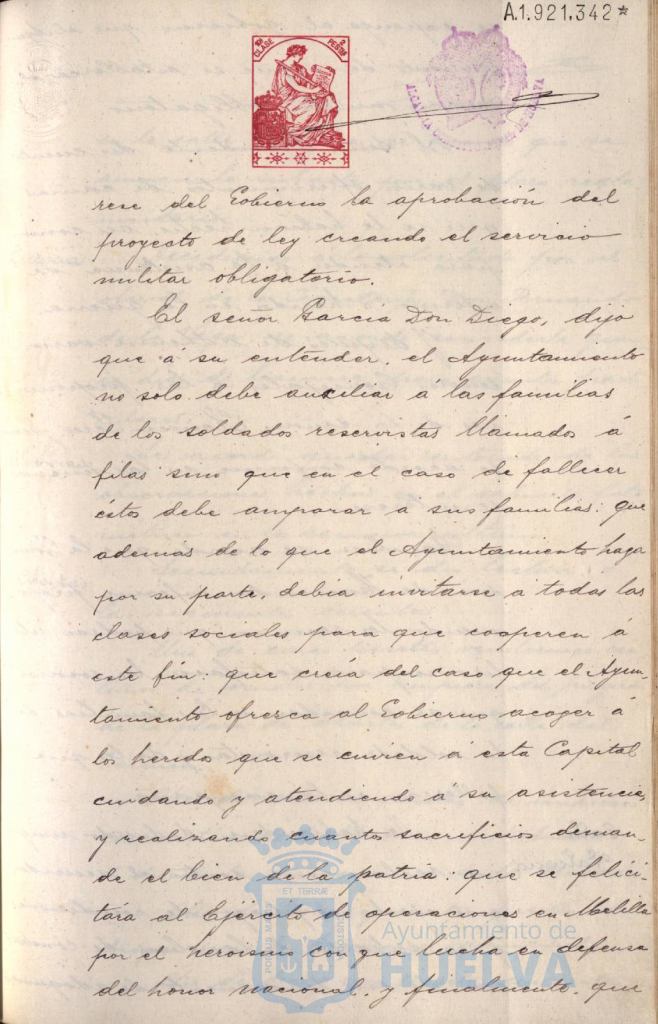 A.1.921.342*
10ª CLASE 2 PESETAS
ALCALDIA CONSTITUCIONAL DE HUELVA
rese del Gobierno la aprobación del
proyecto de ley creando el servicio
militar obligatorio.
El señor García Don Diego, dijo
que á su entender, el Ayuntamiento
no solo debe auxiliar á las familias
de los soldados reservistas llamados á
filas sino que en el caso de fallecer
éstos debe amparar á sus familias: que
además de lo que el Ayuntamiento haga
por su parte, debia invitarse á todas las
clases sociales para que cooperen á
este fin: que creía del caso que el Ayun-
tamiento ofrezca al Gobierno acoger á
los heridos que se envien á esta Capital
cuidando y atendiendo á su asistencia,
y realizando cuantos sacrificios deman-
de el bien de la patria: que se felici-
tará al Ejército de operaciones en Melilla
por el heroismo con que lucha en defensa
del honor nacional, y finalmente, que
PORTUS MARIS ET TERRÆ CUSTODIA
Ayuntamiento de
HUELVA